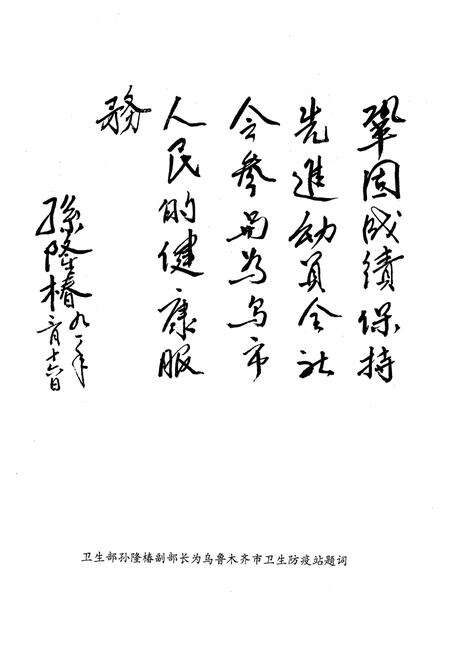 巩固成绩保持
先進动员全社
会参與为乌市
人民的健康服
務
孫隆椿九一年
二月十六日
卫生部孙隆椿副部长为乌鲁木齐市卫生防疫站题词